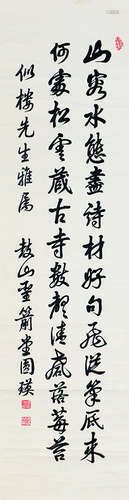 山容水態盡詩材好句飛從筆底来
何處松雲藏古寺數聲清磬落莓苔
似樓先生雅属
鼓山聖箭堂圓瑛